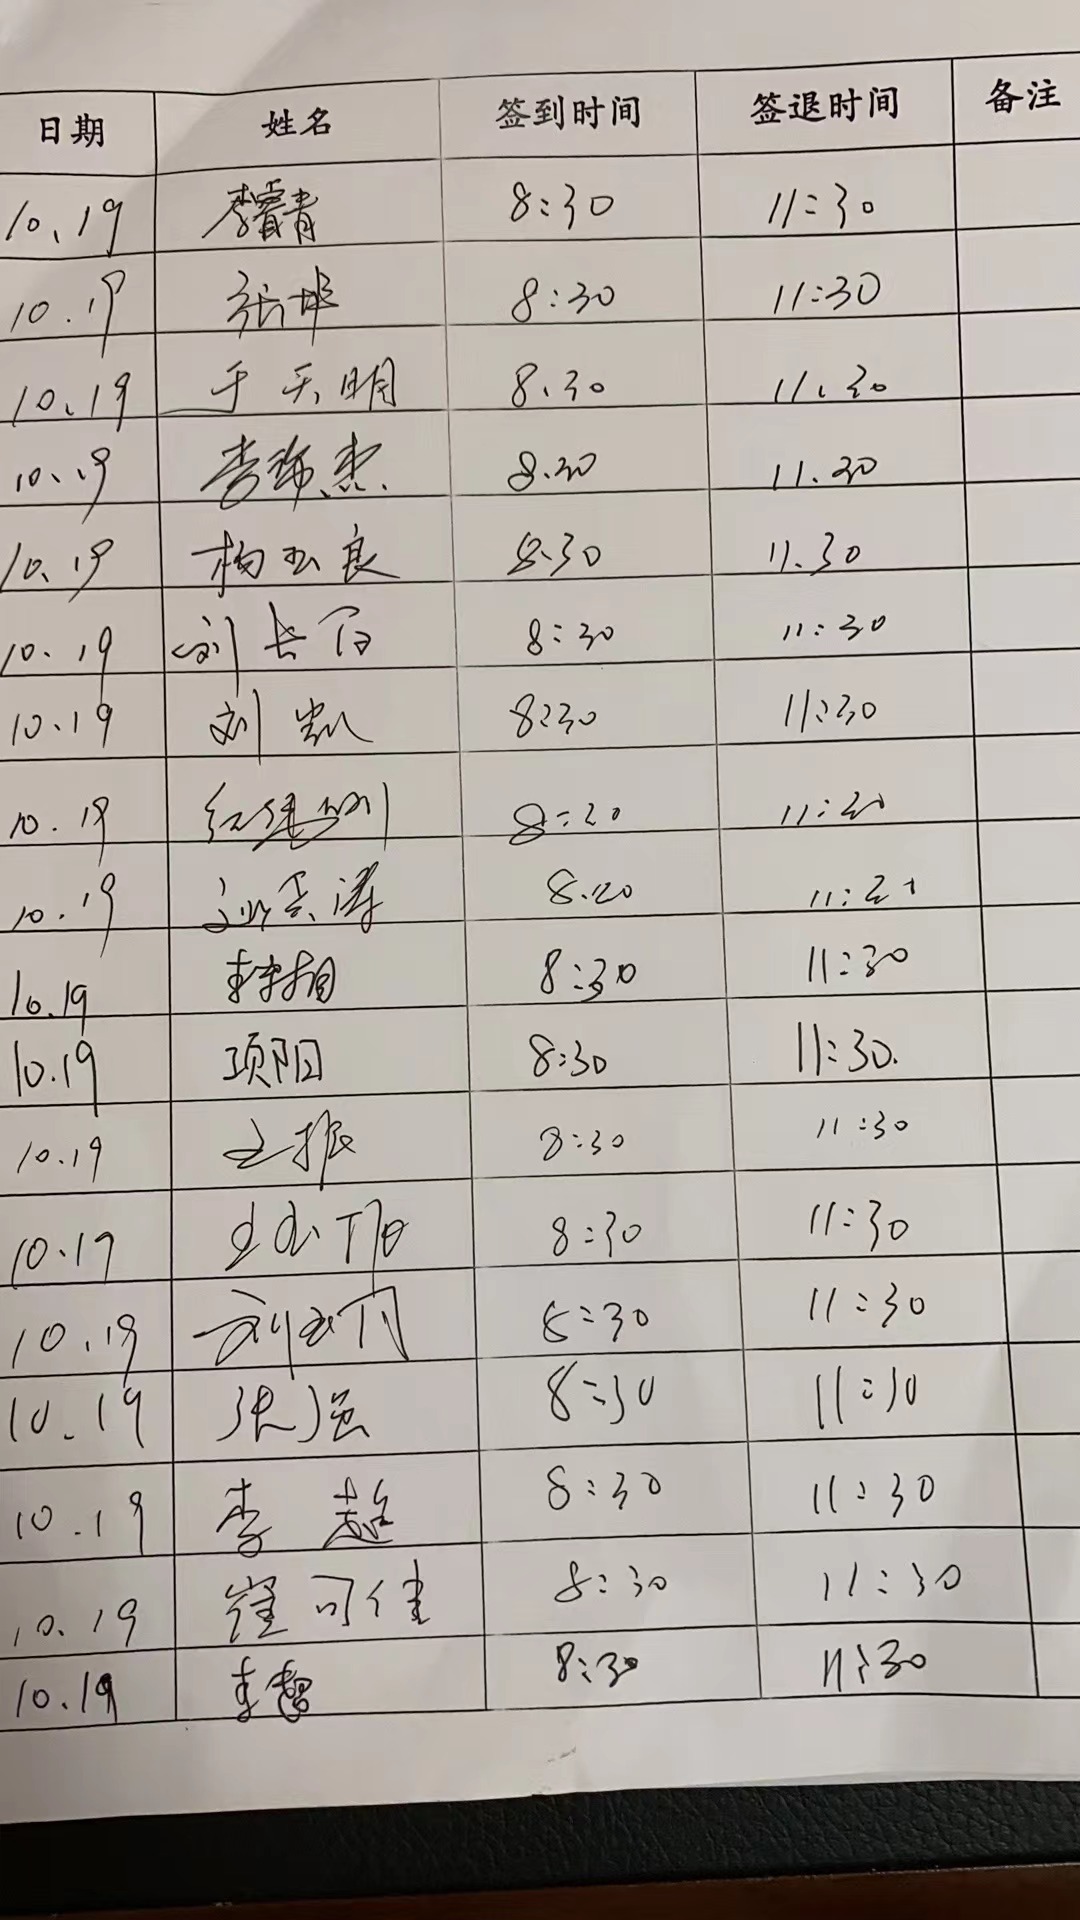 日期 姓名 签到时间 签退时间 备注
10.19 李睿青 8:30 11:30
10.19 8:30 11:30
10.19 于天明 8.30 11.30
10.19 8.30 11.30
10.19 杨玉良 8.30 11.30
10.19 刘长百 8:30 11:30
10.19 刘凯 8:30 11:30
10.19 8:20 11:20
10.19 8.20
10.19 8:30 11:30
10.19 项阳 8:30 11:30.
10.19 王振 8:30 11:30
王玉 8:30 11:30
10.19 刘玉 8:30 11:30
10.19 张强 8:30 11:30
10.19 李超 8:30 11:30
10.19 崔可佳 8:30 11:30
10.19 8:30 11:30